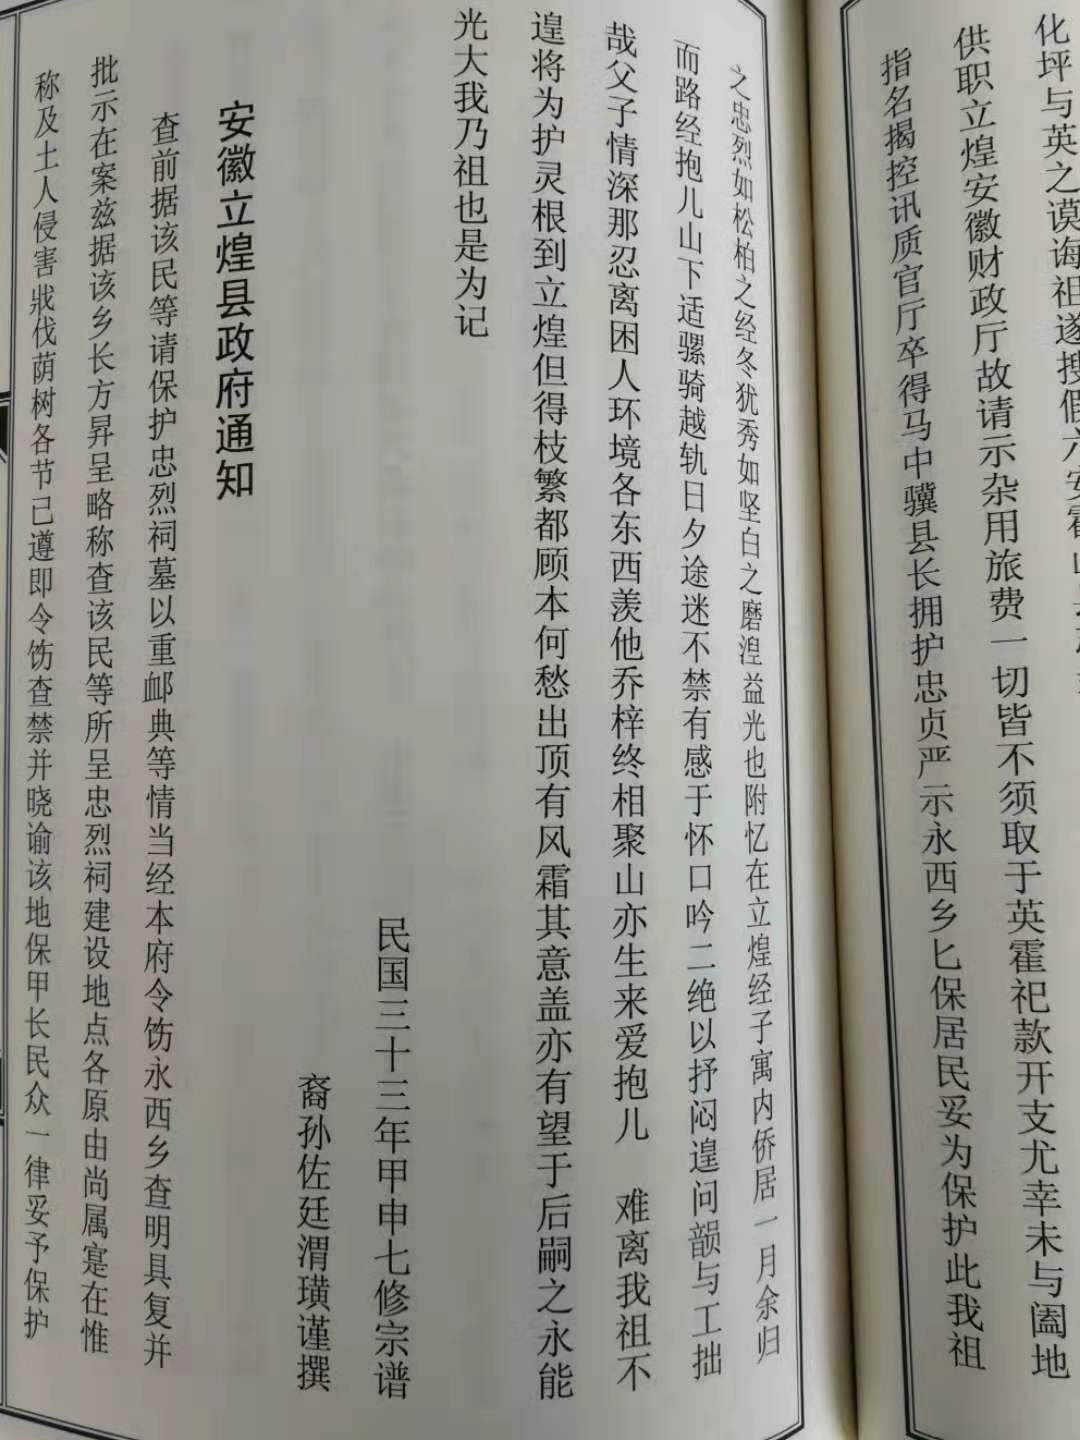 化坪与英之谟诲祖遂搜假六安霍山
供职立煌安徽财政厅故请示杂用旅费一切皆不须取于英霍祀款开支尤幸未与阖地
指名揭控讯质官厅卒得马中骥县长拥护忠贞严示永西乡匕保居民妥为保护此我祖
之忠烈如松柏之经冬犹秀如坚白之磨湼益光也附忆在立煌经子寓内侨居一月余归
而路经抱儿山下适骡骑越轨日夕途迷不禁有感于怀口吟二绝以抒闷遑问韻与工拙
哉父子情深那忍离困人环境各东西羡他乔梓终相聚山亦生来爱抱儿 难离我祖不
遑将为护灵根到立煌但得枝繁都顾本何愁出顶有风霜其意盖亦有望于后嗣之永能
光大我乃祖也是为记
民国三十三年甲申七修宗谱
裔孙佐廷渭璜谨撰
安徽立煌县政府通知
查前据该民等请保护忠烈祠墓以重卹典等情当经本府令饬永西乡查明具复并
批示在案兹据该乡长方昇呈略称查该民等所呈忠烈祠建设地点各原由尚属寔在惟
称及土人侵害戕伐荫树各节己遵即令饬查禁并晓谕该地保甲长民众一律妥予保护